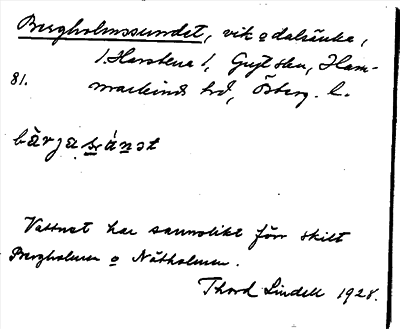 Bergholmssundet, vik o dalsänka,
! Harstena !, Gryt skn, Ham-
81. markinds hd, Österg. l.
bärjasúnət
Vattnet har sannolikt förr skilt
Bergholmen o Nätholmen.
Thord Lindell 1928.